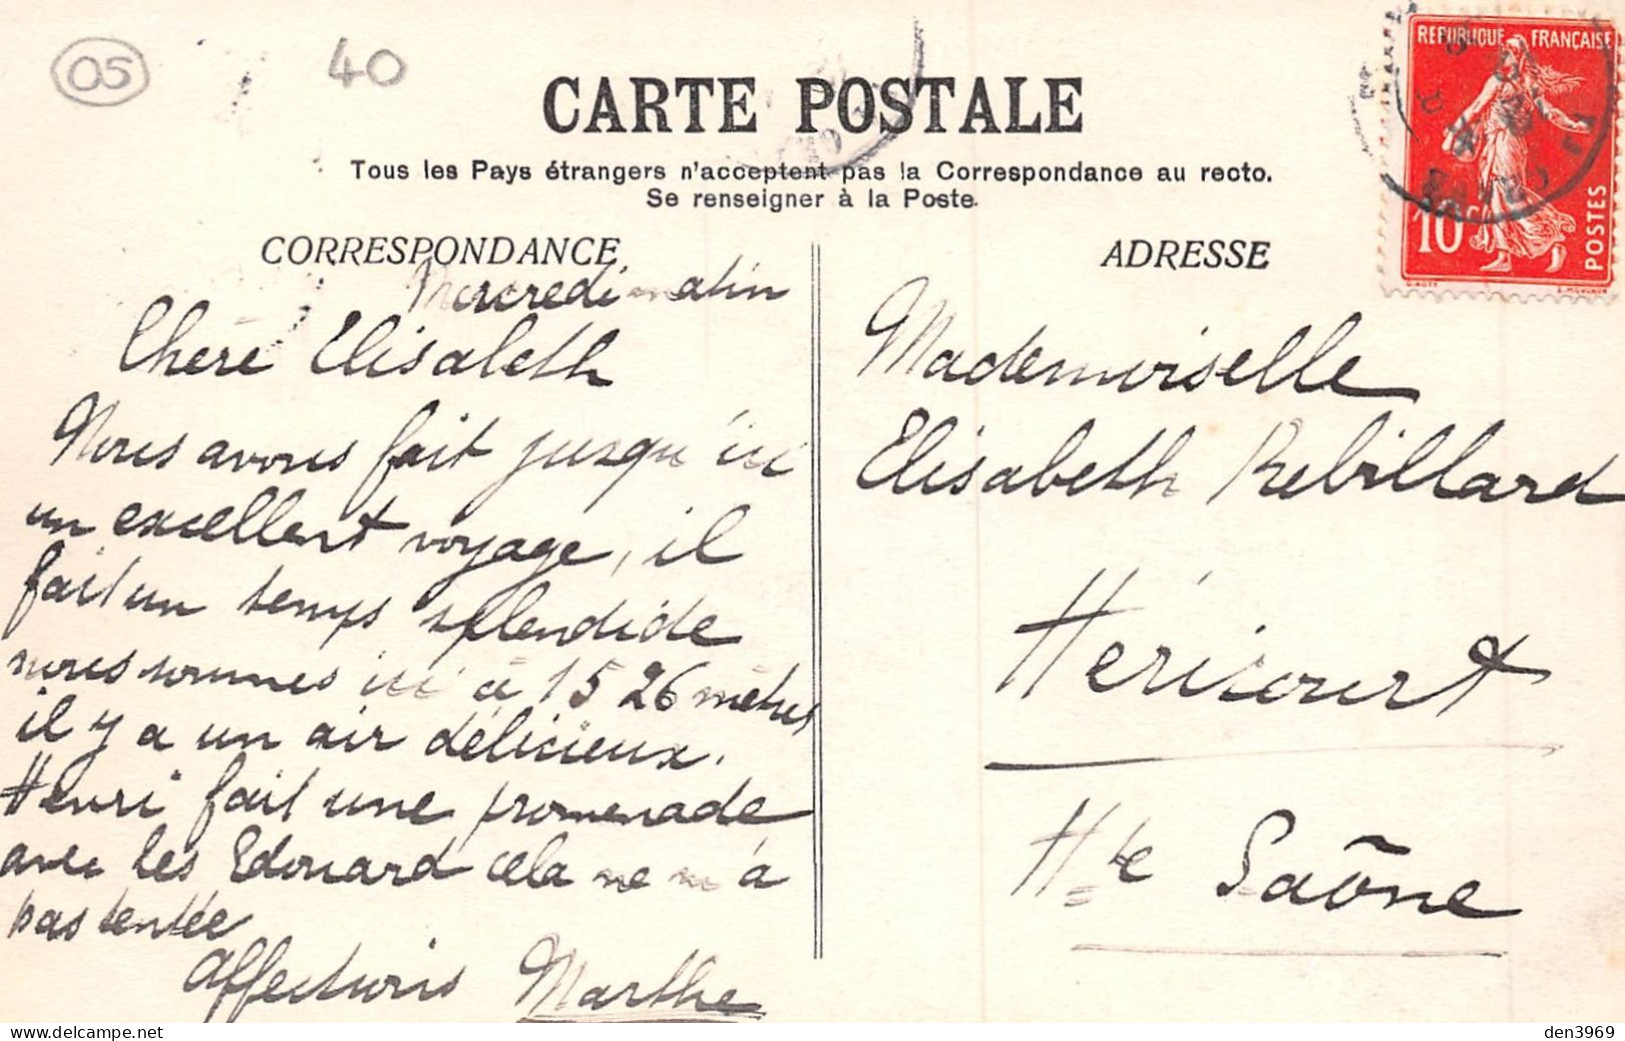 05
40
CARTE POSTALE
Tous les Pays étrangers n'acceptent pas la Correspondance au recto.
Se renseigner à la Poste.
CORRESPONDANCE
Mercredi matin
Chère Elisabeth
Nous avons fait jusqu'ici
un excellent voyage, il
fait un temps splendide
nous sommes ici à 1526 mètres,
il y a un air délicieux.
Henri fait une promenade
avec les Edouard cela ne m'a
pas tentée
Affectueux
Marthe
ADRESSE
Mademoiselle
Elisabeth Rebillard
Héricourt
Hte Saône
REPUBLIQUE FRANÇAISE
10c
POSTES
den3969